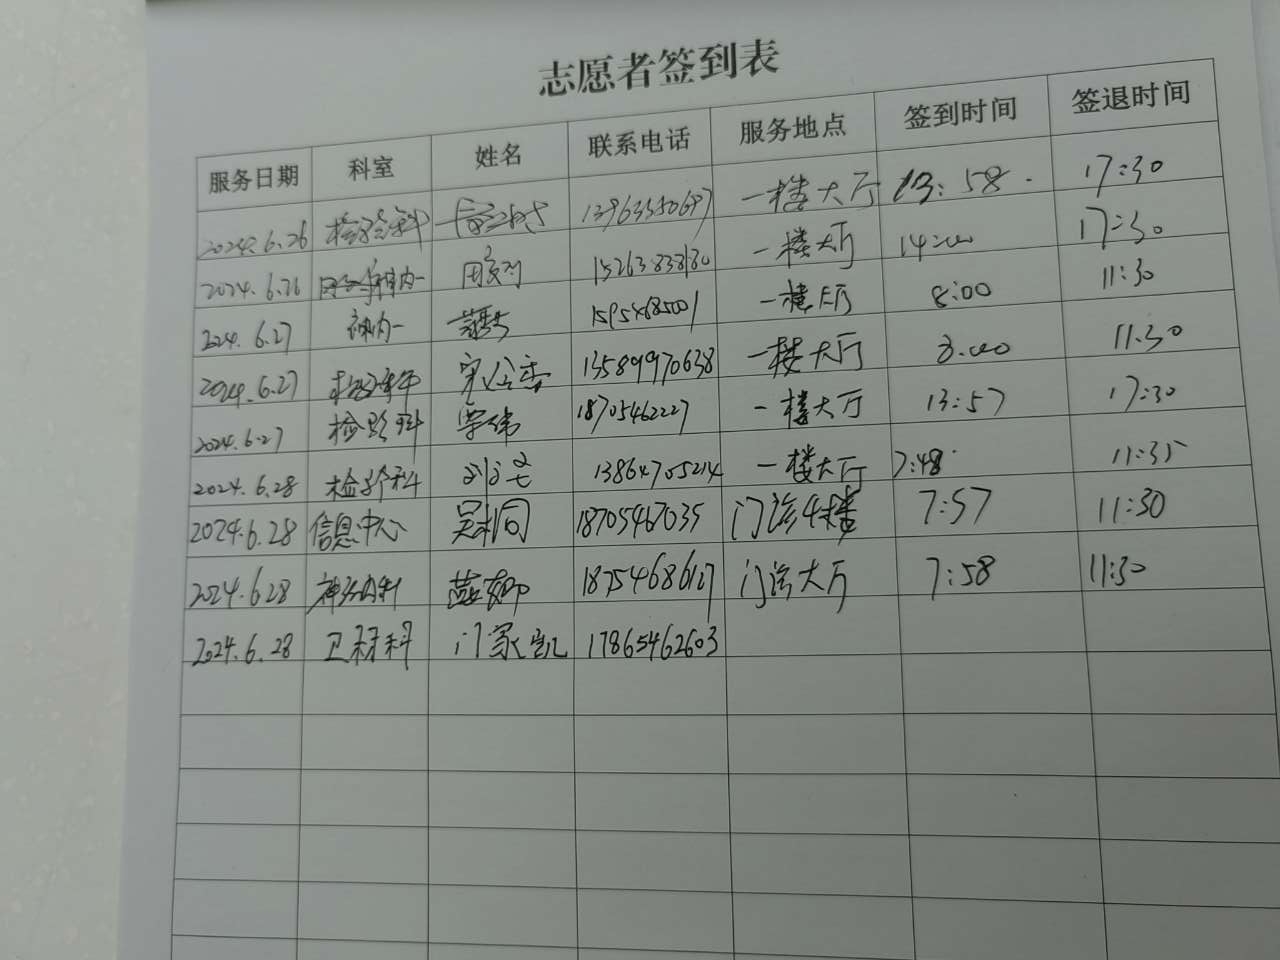 志愿者签到表
服务日期 科室 姓名 联系电话 服务地点 签到时间 签退时间
2024.6.26 检验科 一楼大厅 13:58. 17:30
2024.6.26 一楼大厅 14:00 17:30
2024.6.27 神内一 15954685001 一楼大厅 8:00 11:30
2024.6.27 13589970638 一楼大厅 8:00 11:30
2024.6.27 检验科 18705462227 一楼大厅 13:57 17:30
2024.6.28 检验科 13864705214 一楼大厅 7:48 11:35
2024.6.28 信息中心 18705467035 门诊4楼 7:57 11:30
2024.6.28 神经内科 18754686127 门诊大厅 7:58 11:30
2024.6.28 卫材科 门家凯 17865462603